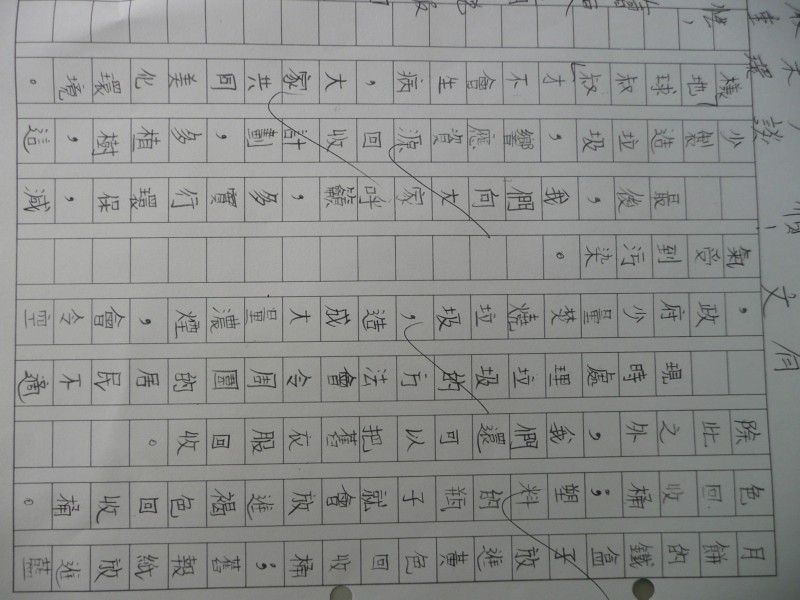 月餅的鐵盒子放進黃色回收桶；舊報紙放進藍
色回收桶；塑料的瓶子就會放進褐色回收桶。
除此之外，我們還可以把舊衣服回收。
現時處理垃圾的方法會令周圍的居民不適
，政府少量焚燒垃圾，造成大量濃煙，會令空
氣受到污染。
最後，我們向大家呼籲，多實行環保，減
少製造垃圾，響應資源回收計劃，多植樹，這
樣地球叔叔才不會生病，大家共同美化環境。